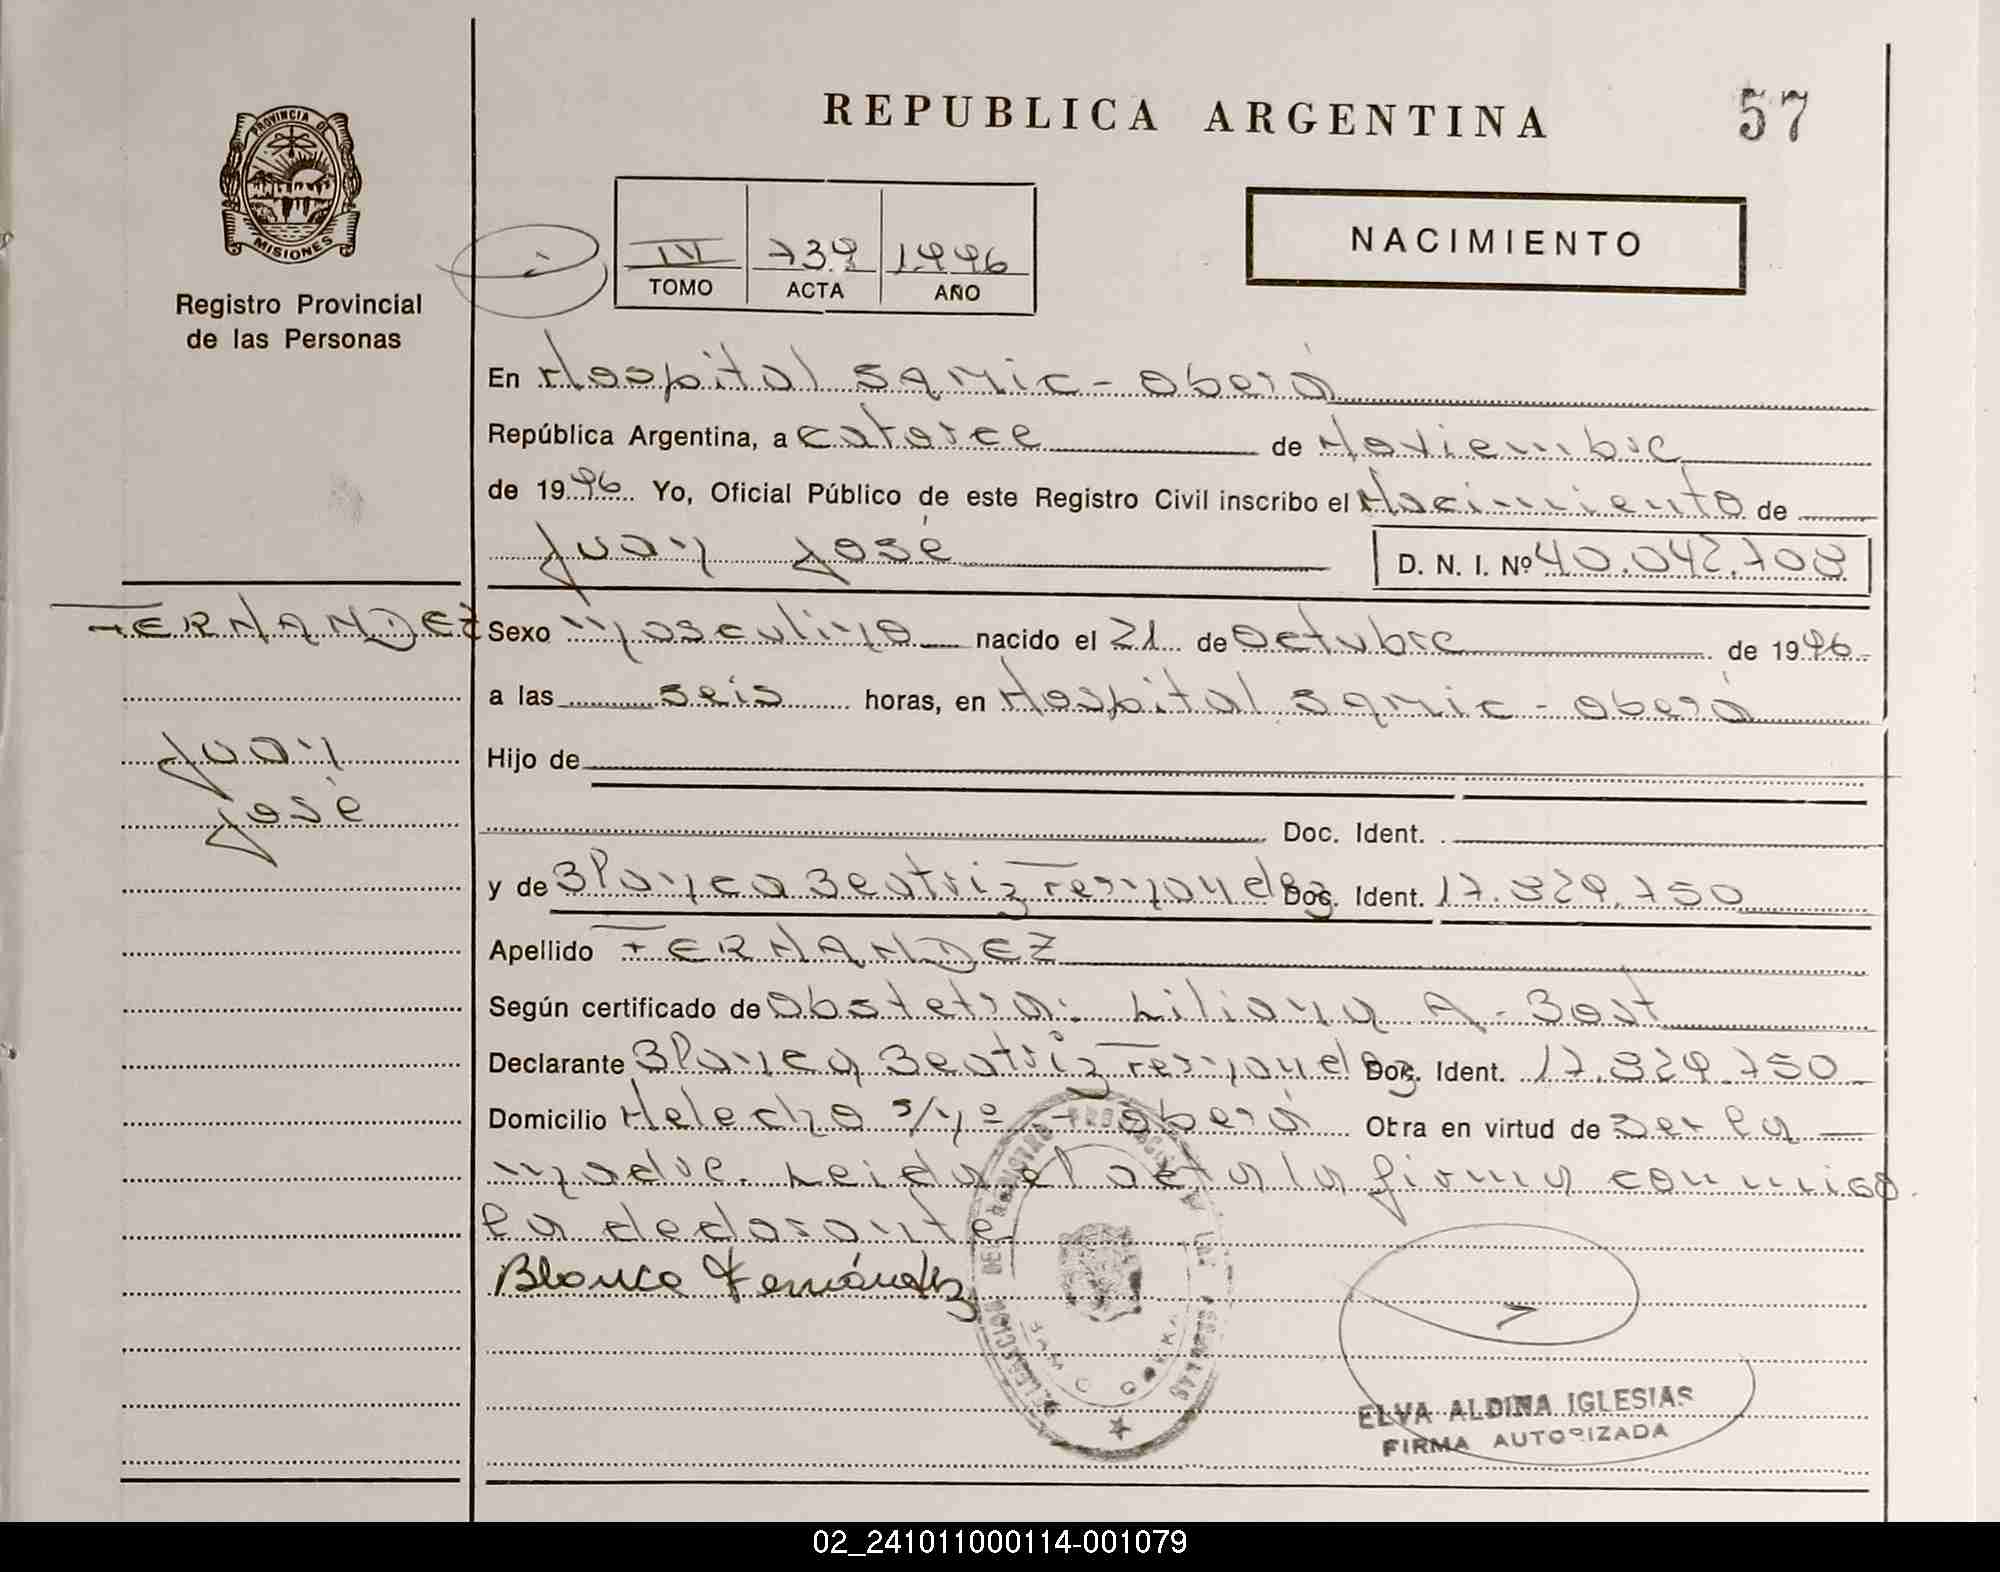 REPUBLICA ARGENTINA
57
PROVINCIA DE
MISIONES
Registro Provincial
de las Personas
IV 739 1996
TOMO ACTA AÑO
NACIMIENTO
En Hospital Samic - Oberá
República Argentina, a catorce de Noviembre
de 1996 Yo, Oficial Público de este Registro Civil inscribo el Nacimiento de
Juan José D. N. I. Nº 40.042.708
FERNANDEZ
Juan
José
Sexo Masculino nacido el 21 de Octubre de 1996
a las seis horas, en Hospital Samic - Oberá
Hijo de
Doc. Ident.
y de Blanca Beatriz Fernandez Doc. Ident. 17.829.750
Apellido FERNANDEZ
Según certificado de Obstetra: Liliana A. Bast
Declarante Blanca Beatriz Fernandez Doc. Ident. 17.829.750
Domicilio Helecho s/nº - Oberá Otra en virtud de Ser la
madre. Leida el acta la firma conmigo
la declarante
Blanca Fernández
DELEGACION DEL REGISTRO PROVINCIAL DE LAS PERSONAS
ELVA ALDINA IGLESIAS
FIRMA AUTORIZADA
02_241011000114-001079